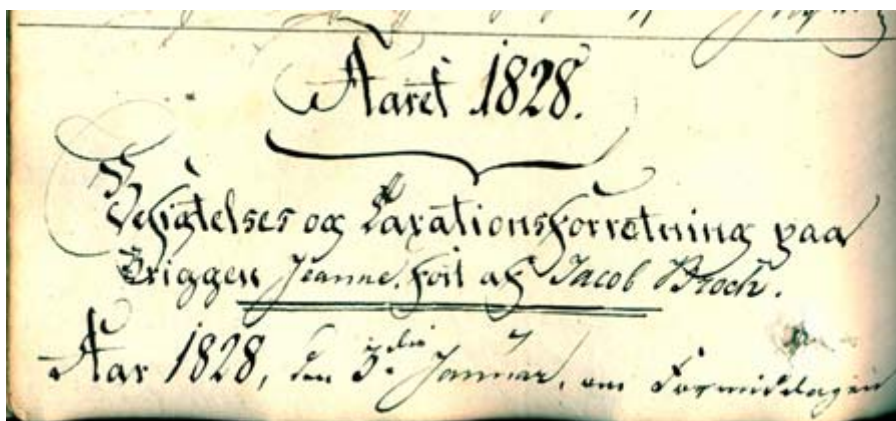 Aaret 1828.
Besigtelses og Taxationsforretning paa
Briggen Jeanne, ført af Jacob Broch.
Aar 1828, den 3.die Januar, om Formiddagen